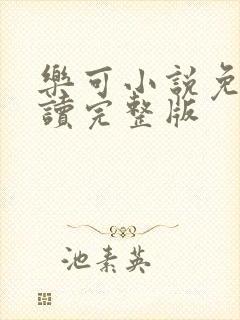 樂可小說免
讀完整版
池素英